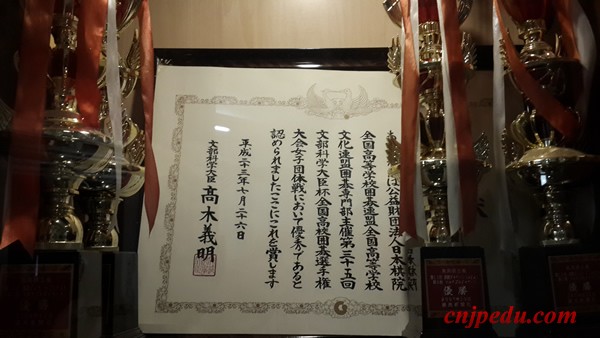 は公益財団法人日本棋院
全国高等学校囲碁連盟全国高等学校
文化連盟囲碁専門部主催第三十五回
文部科学大臣杯全国高校囲碁選手権
大会女子団体戦において優秀であると
認められましたここにこれを賞します
平成二十三年七月二十六日
文部科学大臣 高木義明
優勝
優勝
cnjpedu.com